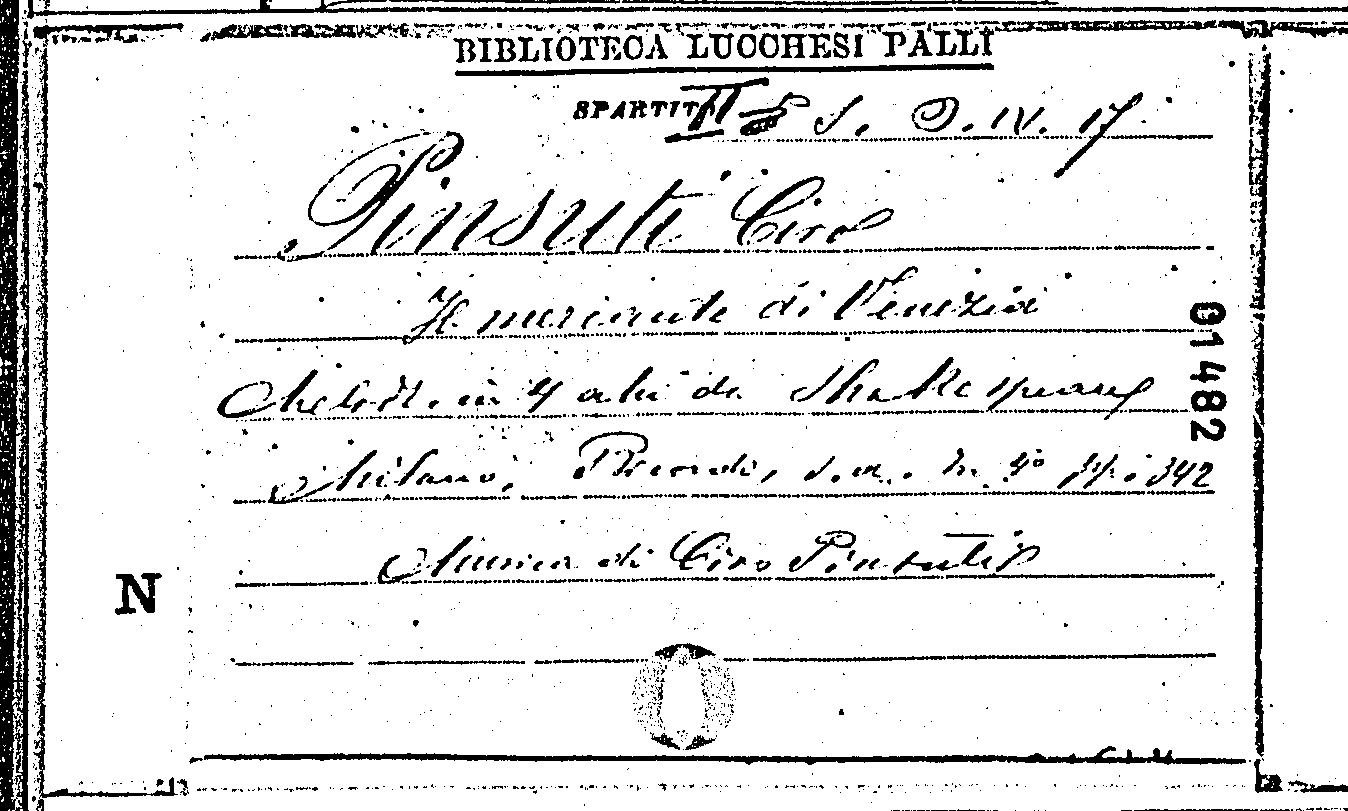 BIBLIOTECA LUCCHESI PALLI
SPARTITI S. D. IV. 17
Pinsuti Ciro
Il mercante di Venezia
Melod. in 4 atti di Shakespeare
Milano, Ricordi, s.a. In 4° pp. 342
Musica di Ciro Pinsuti
01482
N